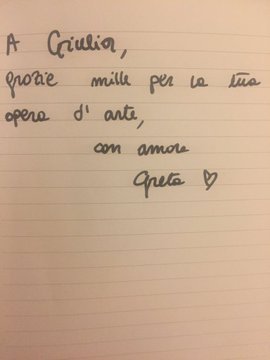 A Giulia,
grazie mille per la tua
opera d' arte,
con amore
Greta ♡